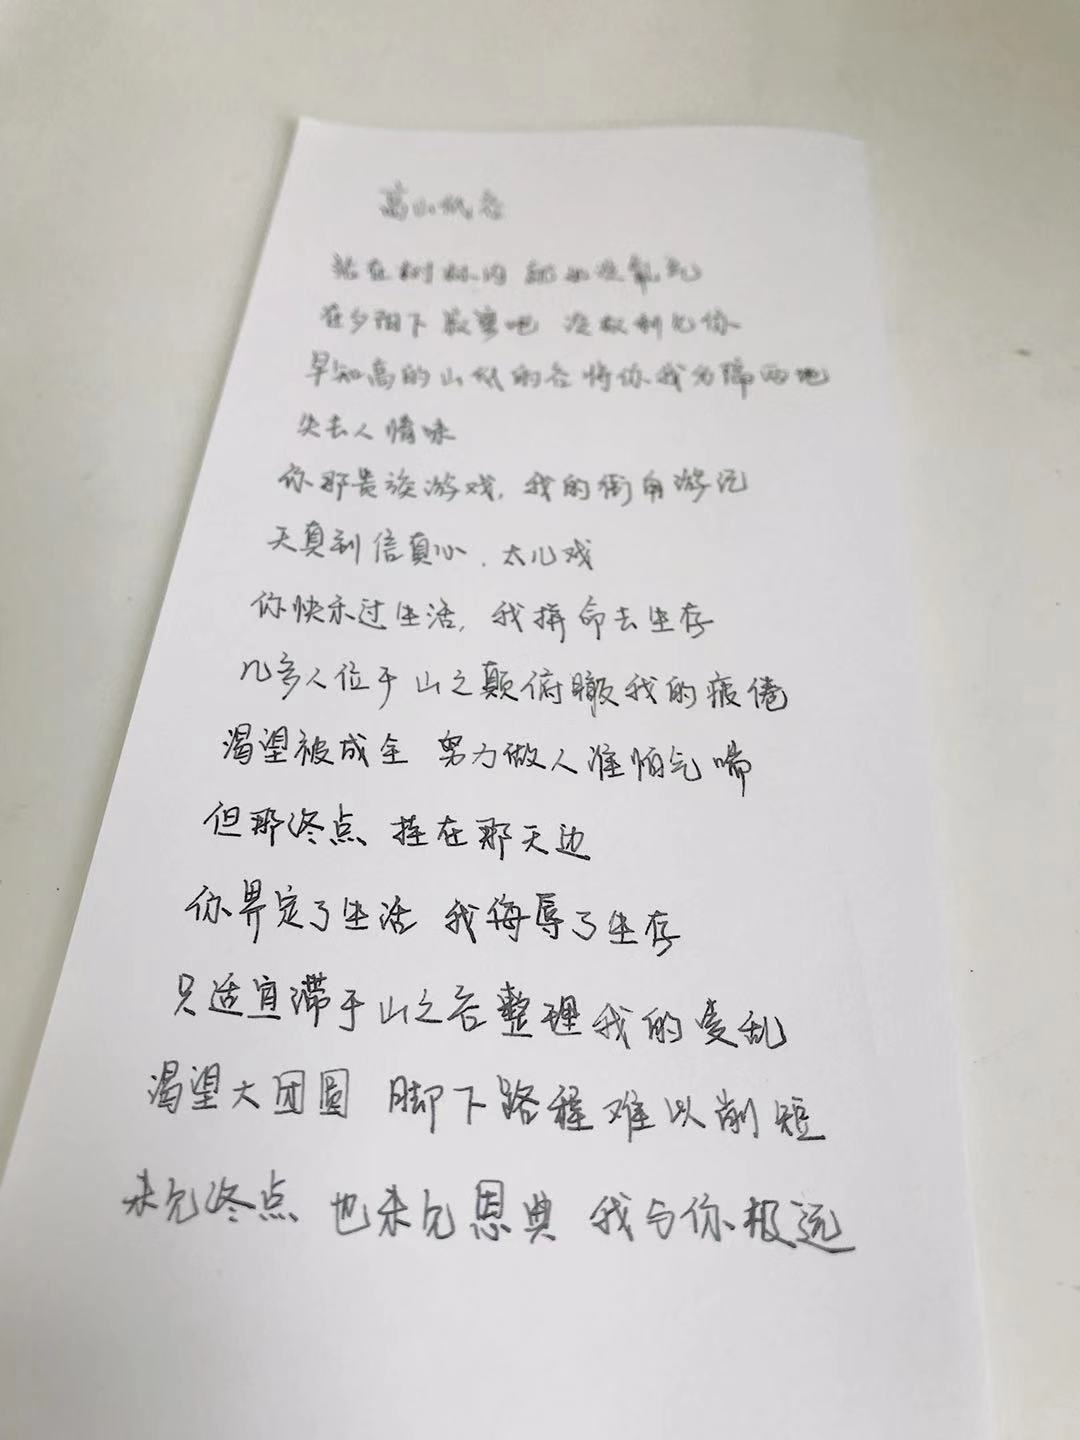 高山低谷
站在树林内 就如没氧气
在夕阳下 寂寞吧 没权利见你
早知高的山低的谷将你我分隔两地
失去人情味
你那贵族游戏，我的街角游记
天真到信真心，太儿戏
你快乐过生活，我拼命去生存
几多人位于山之巅俯瞰我的疲倦
渴望被成全 努力做人谁怕气喘
但那终点 挂在那天边
你界定了生活 我侮辱了生存
只适宜滞于山之谷整理我的凌乱
渴望大团圆 脚下路程难以削短
未见终点 也未见恩典 我与你极远